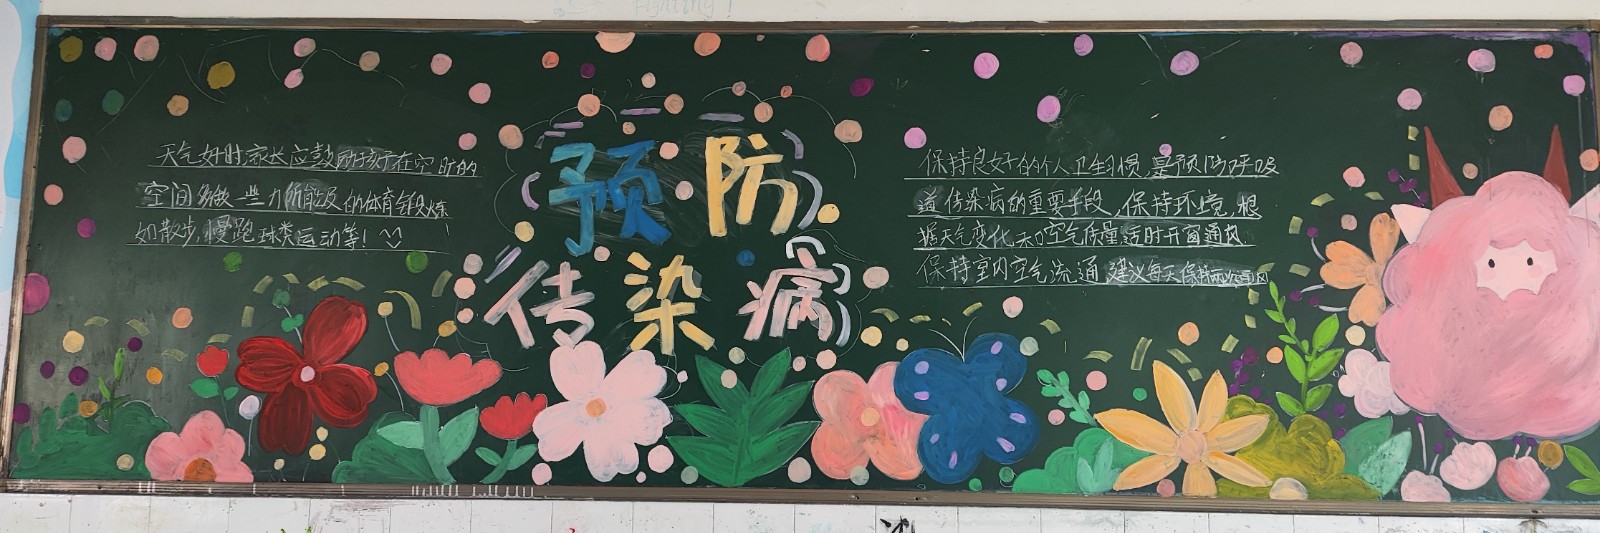 天气好时,家长应鼓励孩子在空旷的
空间多做一些力所能及的体育锻炼
如散步,慢跑,球类运动等!
预防
传染病
保持良好的个人卫生习惯,是预防呼吸
道传染病的重要手段,保持环境,根
据天气变化和空气质量适时开窗通风
保持室内空气流通,建议每天保持两次通风